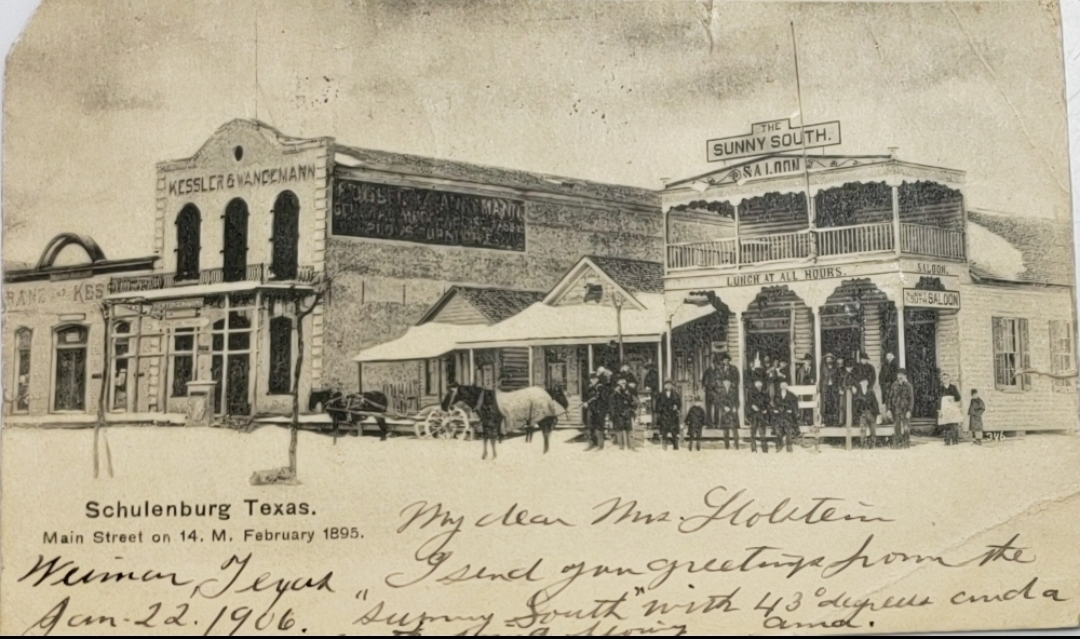 THE
SUNNY SOUTH.
SALOON
KESSLER & WANDEMANN
LUNCH AT ALL HOURS.
SALOON.
SALOON
346
Schulenburg Texas.
Main Street on 14. M. February 1895.
My dear Mrs. Holstein
Weimar, Texas
I send you greetings from the
Jan. 22. 1906.
"Sunny South" with 43° degrees and a
and.